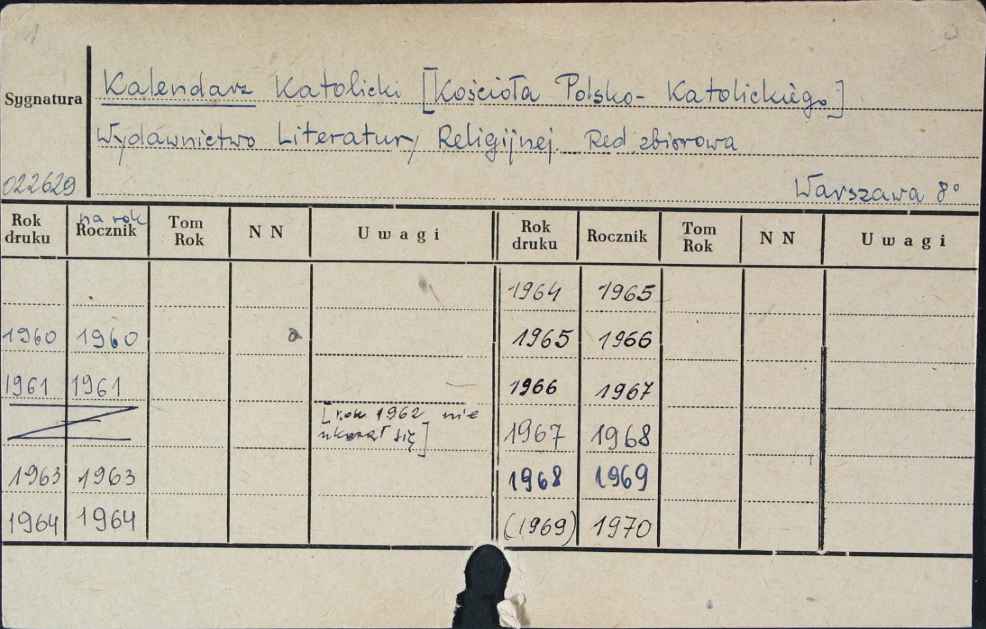 1
Sygnatura
Kalendarz Katolicki [Kościoła Polsko-Katolickiego]
Wydawnictwo Literatury Religijnej. Red. zbiorowa
022629
Warszawa 8°
Rok druku | na rok Rocznik | Tom Rok | N N | Uwagi | Rok druku | Rocznik | Tom Rok | N N | Uwagi
1964 1965
1960 1960
1965 1966
1961 1961
1966 1967
[rok 1962 nie
ukazał się]
1967 1968
1963 1963
1968 1969
1964 1964
(1969) 1970